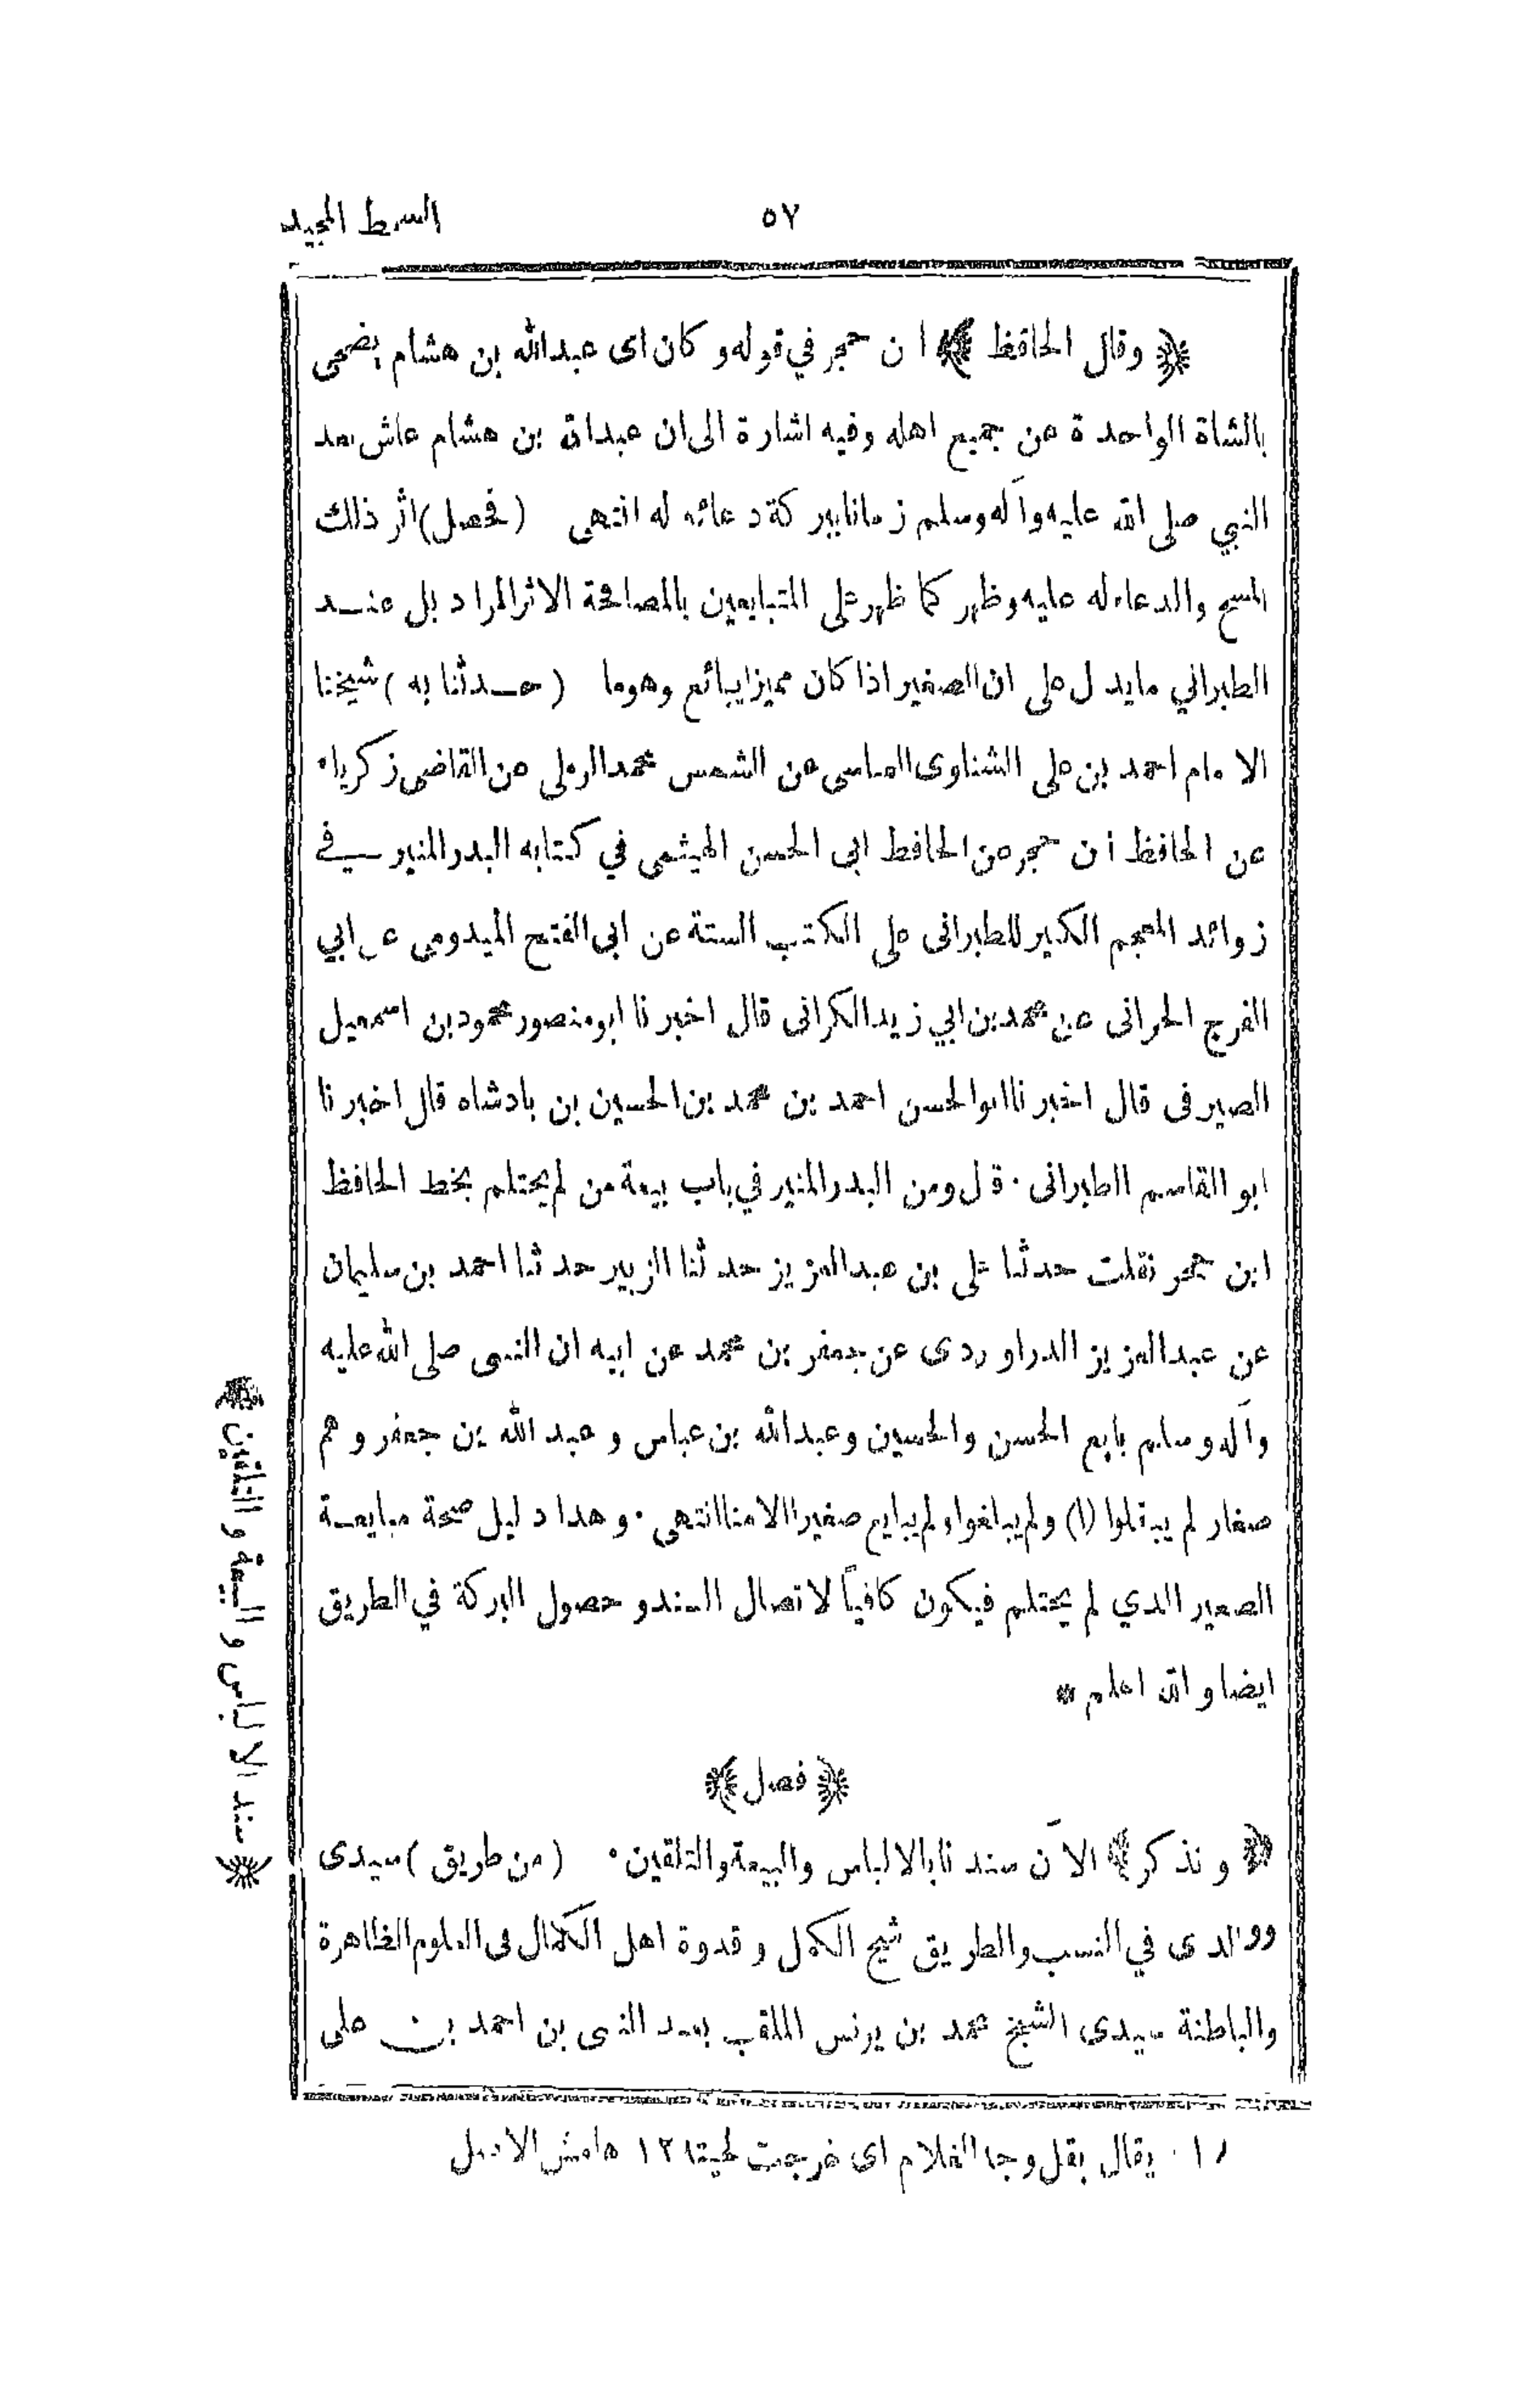 السمط المجيد
٥٧
﴿ وقال الحافظ ﴾ ابن حجر في قوله وكان اى عبدالله بن هشام يضحى
بالشاة الواحدة عن جميع اهله وفيه اشارة الى ان عبدالله بن هشام عاش بعد
النبي صلى الله عليه وآله وسلم زمانا ببركة دعائه له انتهى (فحصل) اثر ذلك
المسح والدعاء له عليه وظهر كما ظهر على المتبايعين بالمصافحة الاثر المراد بل عند
الطبراني ما يدل على ان الصغير اذا كان مميزا يبائع وهو ما (حدثنا به) شيخنا
الامام احمد بن على الشناوى العباسى عن الشمس محمد الرملى عن القاضى زكرياء
عن الحافظ ابن حجر عن الحافظ ابى الحسن الهيثمى في كتابه البدر المنير في
زوائد المعجم الكبير للطبرانى على الكتب الستة عن ابى الفتح الميدومى عن ابي
الفرج الحرانى عن محمد بن ابي زيد الكرانى قال اخبرنا ابو منصور محمود بن اسمعيل
الصيرفى قال اخبرنا ابو الحسن احمد بن محمد بن الحسين بن بادشاه قال اخبرنا
ابو القاسم الطبرانى · قال ومن البدر المنير في باب بيعة من لم يحتلم بخط الحافظ
ابن حجر نقلت حدثنا على بن عبدالعزيز حدثنا الزبير حدثنا احمد بن سليمان
عن عبدالعزيز الدراوردى عن جعفر بن محمد عن ابيه ان النبى صلى الله عليه
وآله وسلم بايع الحسن والحسين وعبدالله بن عباس وعبد الله بن جعفر وهم
صغار لم يبقلوا (١) ولم يبلغوا ولم يبايع صغيرا الا منا انتهى · وهذا دليل صحة مبايعة
الصغير الذي لم يحتلم فيكون كافياً لاتصال السند وحصول البركة في الطريق
ايضا والله اعلم *
﴿ فصل ﴾
﴿ ونذكر ﴾ الآن سندنا بالالباس والبيعة والتلقين · (من طريق) سيدى
ووالدى في النسب والطريق شيخ الكمل وقدوة اهل الكمال فى العلوم الظاهرة
والباطنة سيدى الشيخ محمد بن يونس الملقب بعبد النبى بن احمد بن على
﴿ سند الالباس و البيعة و التلقين ﴾
(١) يقال بقل وجه الغلام اى خرجت لحيته ١٢ هامش الاصل